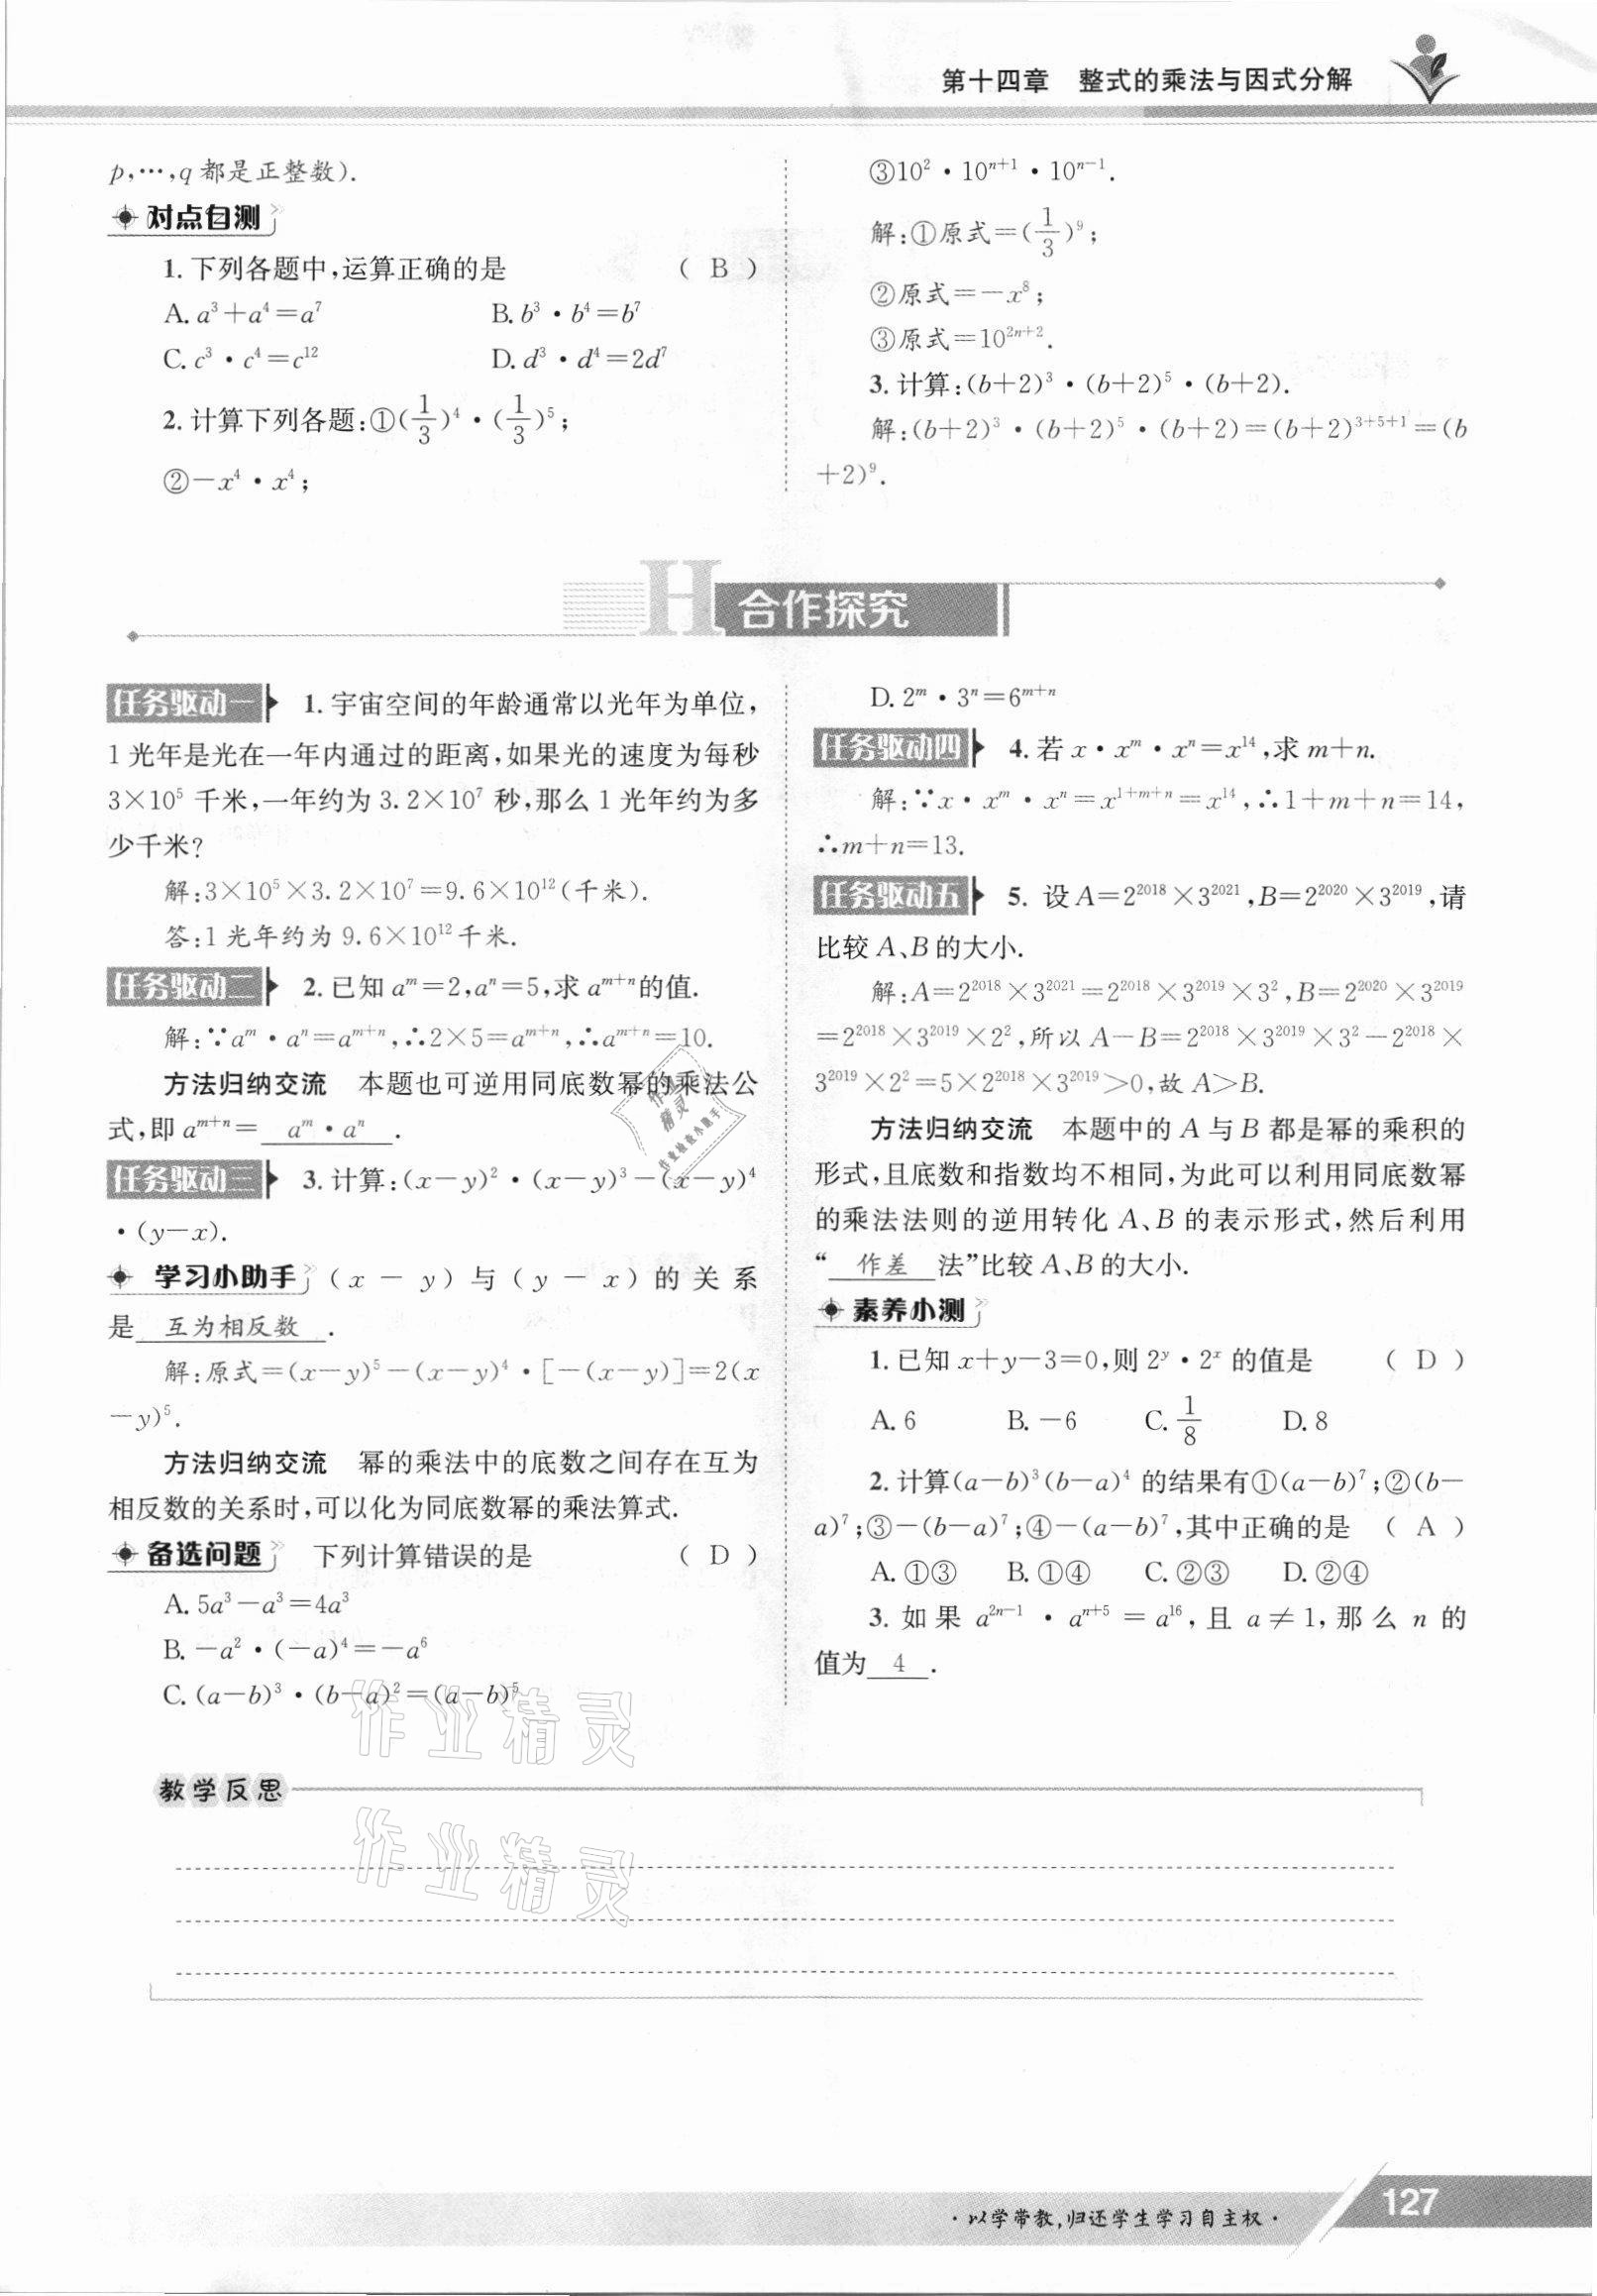 第十四章 整式的乘法与因式分解
p,…,q 都是正整数).
对点自测
1. 下列各题中,运算正确的是 ( B )
A. a³+a⁴=a⁷ B. b³・b⁴=b⁷
C. c³・c⁴=c¹² D. d³・d⁴=2d⁷
2. 计算下列各题:①(1/3)⁴・(1/3)⁵;
②-x⁴・x⁴;
③10²・10ⁿ⁺¹・10ⁿ⁻¹.
解:①原式=(1/3)⁹;
②原式=-x⁸;
③原式=10²ⁿ⁺².
3. 计算:(b+2)³・(b+2)⁵・(b+2).
解:(b+2)³・(b+2)⁵・(b+2)=(b+2)³⁺⁵⁺¹=(b
+2)⁹.
H 合作探究
任务驱动一 1. 宇宙空间的年龄通常以光年为单位,
1 光年是光在一年内通过的距离,如果光的速度为每秒
3×10⁵ 千米,一年约为 3.2×10⁷ 秒,那么 1 光年约为多
少千米?
解:3×10⁵×3.2×10⁷=9.6×10¹²(千米).
答:1 光年约为 9.6×10¹² 千米.
任务驱动二 2. 已知 aᵐ=2,aⁿ=5,求 aᵐ⁺ⁿ 的值.
解:∵aᵐ・aⁿ=aᵐ⁺ⁿ,∴2×5=aᵐ⁺ⁿ,∴aᵐ⁺ⁿ=10.
方法归纳交流 本题也可逆用同底数幂的乘法公
式,即 aᵐ⁺ⁿ= aᵐ・aⁿ .
任务驱动三 3. 计算:(x-y)²・(x-y)³-(x-y)⁴
・(y-x).
学习小助手 (x-y)与(y-x)的关系
是 互为相反数 .
解:原式=(x-y)⁵-(x-y)⁴・[-(x-y)]=2(x
-y)⁵.
方法归纳交流 幂的乘法中的底数之间存在互为
相反数的关系时,可以化为同底数幂的乘法算式.
备选问题 下列计算错误的是 ( D )
A. 5a³-a³=4a³
B. -a²・(-a)⁴=-a⁶
C. (a-b)³・(b-a)²=(a-b)⁵
D. 2ᵐ・3ⁿ=6ᵐ⁺ⁿ
任务驱动四 4. 若 x・xᵐ・xⁿ=x¹⁴,求 m+n.
解:∵x・xᵐ・xⁿ=x¹⁺ᵐ⁺ⁿ=x¹⁴,∴1+m+n=14,
∴m+n=13.
任务驱动五 5. 设 A=2²⁰¹⁸×3²⁰²¹,B=2²⁰²⁰×3²⁰¹⁹,请
比较 A、B 的大小.
解:A=2²⁰¹⁸×3²⁰²¹=2²⁰¹⁸×3²⁰¹⁹×3²,B=2²⁰²⁰×3²⁰¹⁹
=2²⁰¹⁸×3²⁰¹⁹×2²,所以 A-B=2²⁰¹⁸×3²⁰¹⁹×3²-2²⁰¹⁸×
3²⁰¹⁹×2²=5×2²⁰¹⁸×3²⁰¹⁹>0,故 A>B.
方法归纳交流 本题中的 A 与 B 都是幂的乘积的
形式,且底数和指数均不相同,为此可以利用同底数幂
的乘法法则的逆用转化 A、B 的表示形式,然后利用
“ 作差 法”比较 A、B 的大小.
素养小测
1. 已知 x+y-3=0,则 2ʸ・2ˣ 的值是 ( D )
A. 6 B. -6 C. 1/8 D. 8
2. 计算(a-b)³(b-a)⁴ 的结果有①(a-b)⁷;②(b-
a)⁷;③-(b-a)⁷;④-(a-b)⁷,其中正确的是 ( A )
A. ①③ B. ①④ C. ②③ D. ②④
3. 如果 a²ⁿ⁻¹・aⁿ⁺⁵=a¹⁶,且 a≠1,那么 n 的
值为 4 .
作业精灵
作业精灵
作业精灵
作业检查小助手
教学反思
・以学带教,归还学生学习自主权・
127